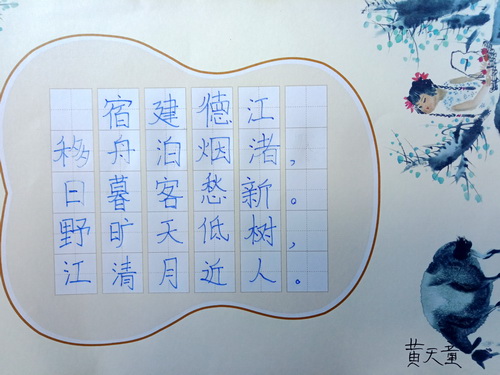 宿建德江
移舟泊烟渚，
日暮客愁新。
野旷天低树，
江清月近人。
黄天童